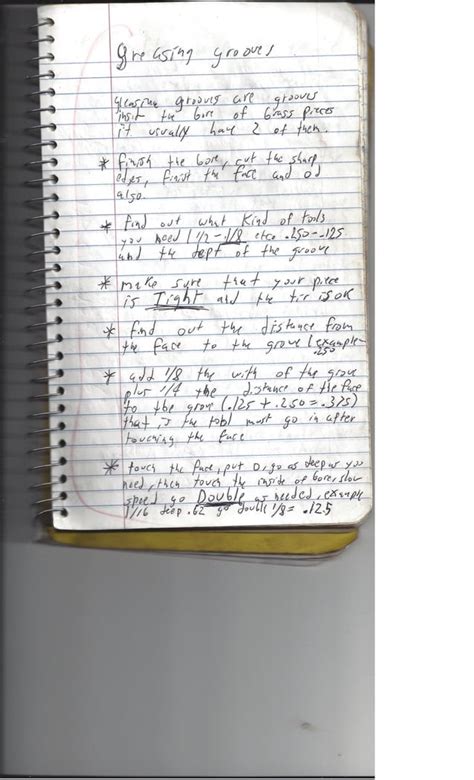 Greasing grooves
gleasing grooves are grooves
insit the bore of brass pieces
it usually have 2 of them.
* finish the bore, cut the sharp
edges, finist the face and od
also.
* find out what kind of tools
you need 1/2 - 1/8 etc. .250-.125
and the dept of the groove
* make sure that your piece
is Tight and the tir is ok
* find out the distance from
the face to the grove (example
.250
* add 1/8 the with of the grove
plus 1/4 the distance of the face
to the grove (.125 + .250 = .375)
that is the tobl must go in after
touching the face
* touch the face, put 0, go as deep as you
need, then touch the inside of bore, slow
speed go Double as needed, example
1/16 deep .62 go double 1/8 = .125